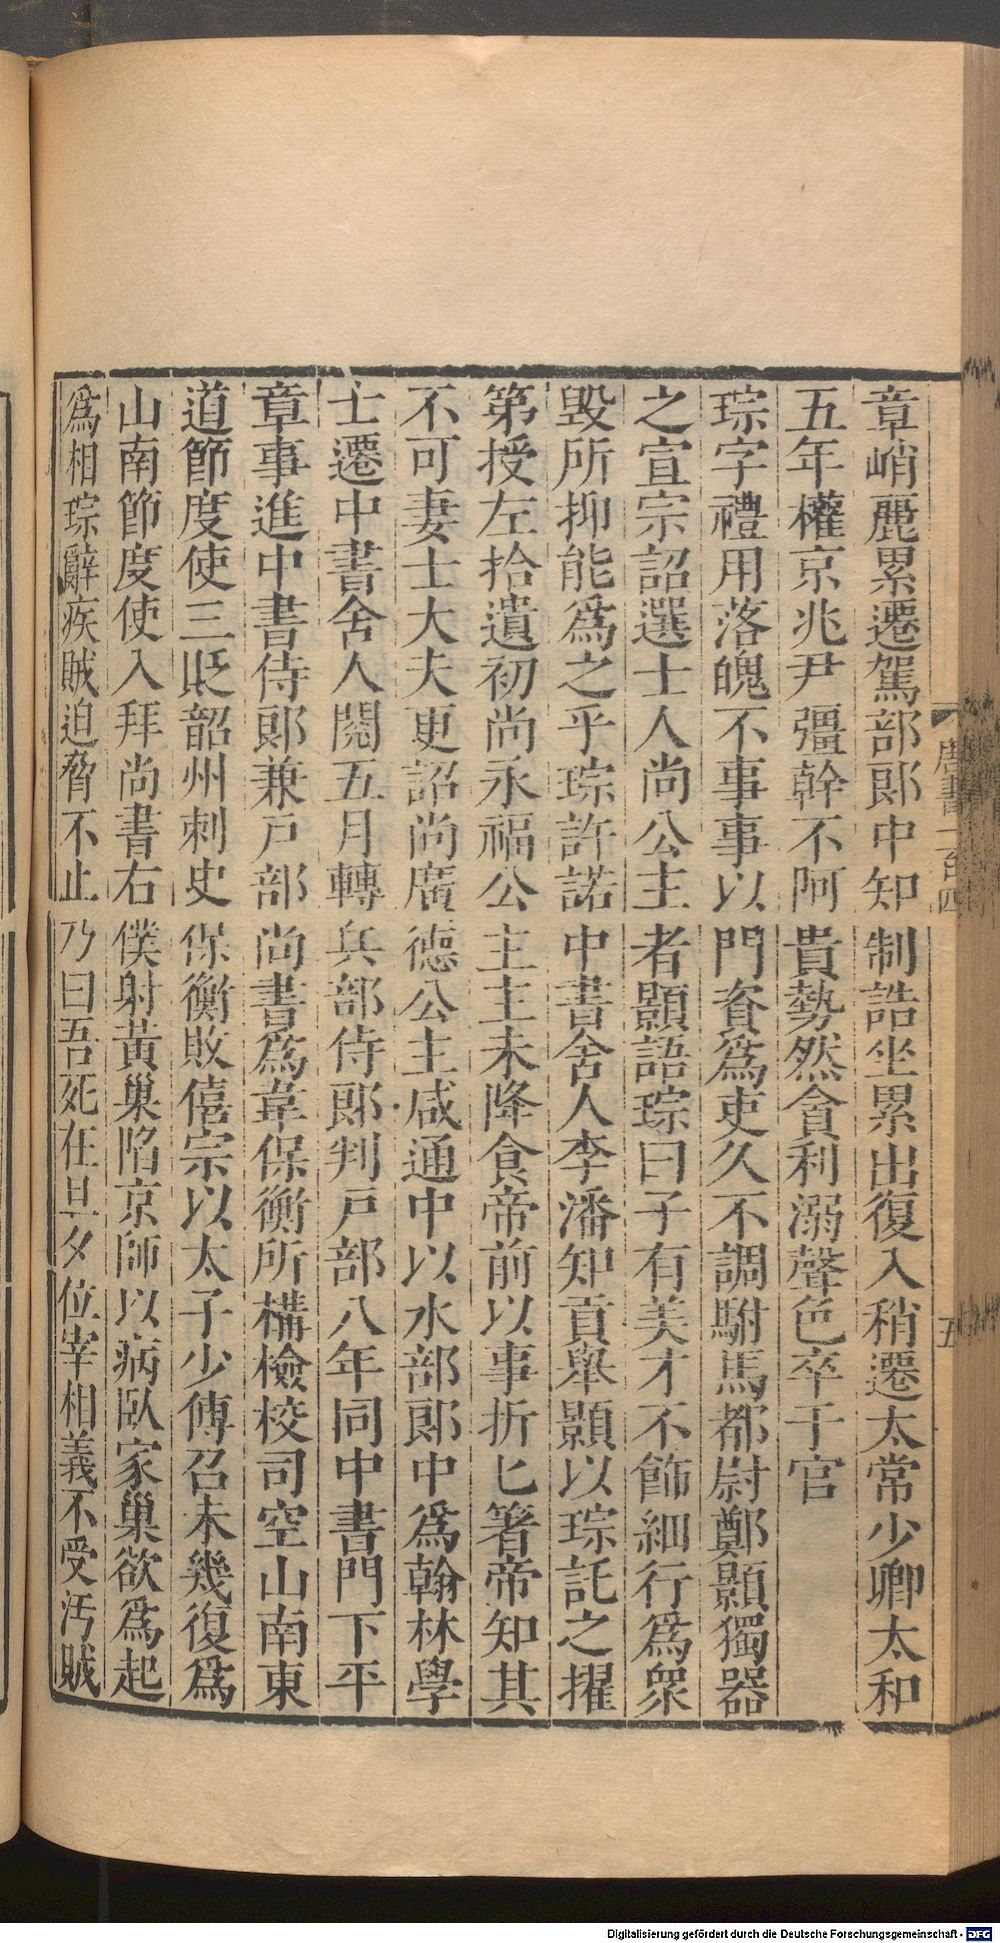 唐書一百四
五
章峭麗累遷駕部郎中知制誥坐累出復入稍遷太常少卿太和
五年權京兆尹彊幹不阿貴勢然貪利溺聲色卒于官
琮字禮用落魄不事事以門資爲吏久不調駙馬都尉鄭顥獨器
之宣宗詔選士人尚公主者顥語琮曰子有美才不飾細行爲衆
毀所抑能爲之乎琮許諾中書舍人李潘知貢舉顥以琮託之擢
第授左拾遺初尚永福公主主未降食帝前以事折匕箸帝知其
不可妻士大夫更詔尚廣德公主咸通中以水部郎中爲翰林學
士遷中書舍人閱五月轉兵部侍郎判戶部八年同中書門下平
章事進中書侍郎兼戶部尚書爲韋保衡所構檢校司空山南東
道節度使三貶韶州刺史保衡敗僖宗以太子少傅召未幾復爲
山南節度使入拜尚書右僕射黃巢陷京師以病臥家巢欲爲起
爲相琮辭疾賊迫脅不止乃曰吾死在旦夕位宰相義不受汚賊
Digitalisierung gefördert durch die Deutsche Forschungsgemeinschaft - DFG